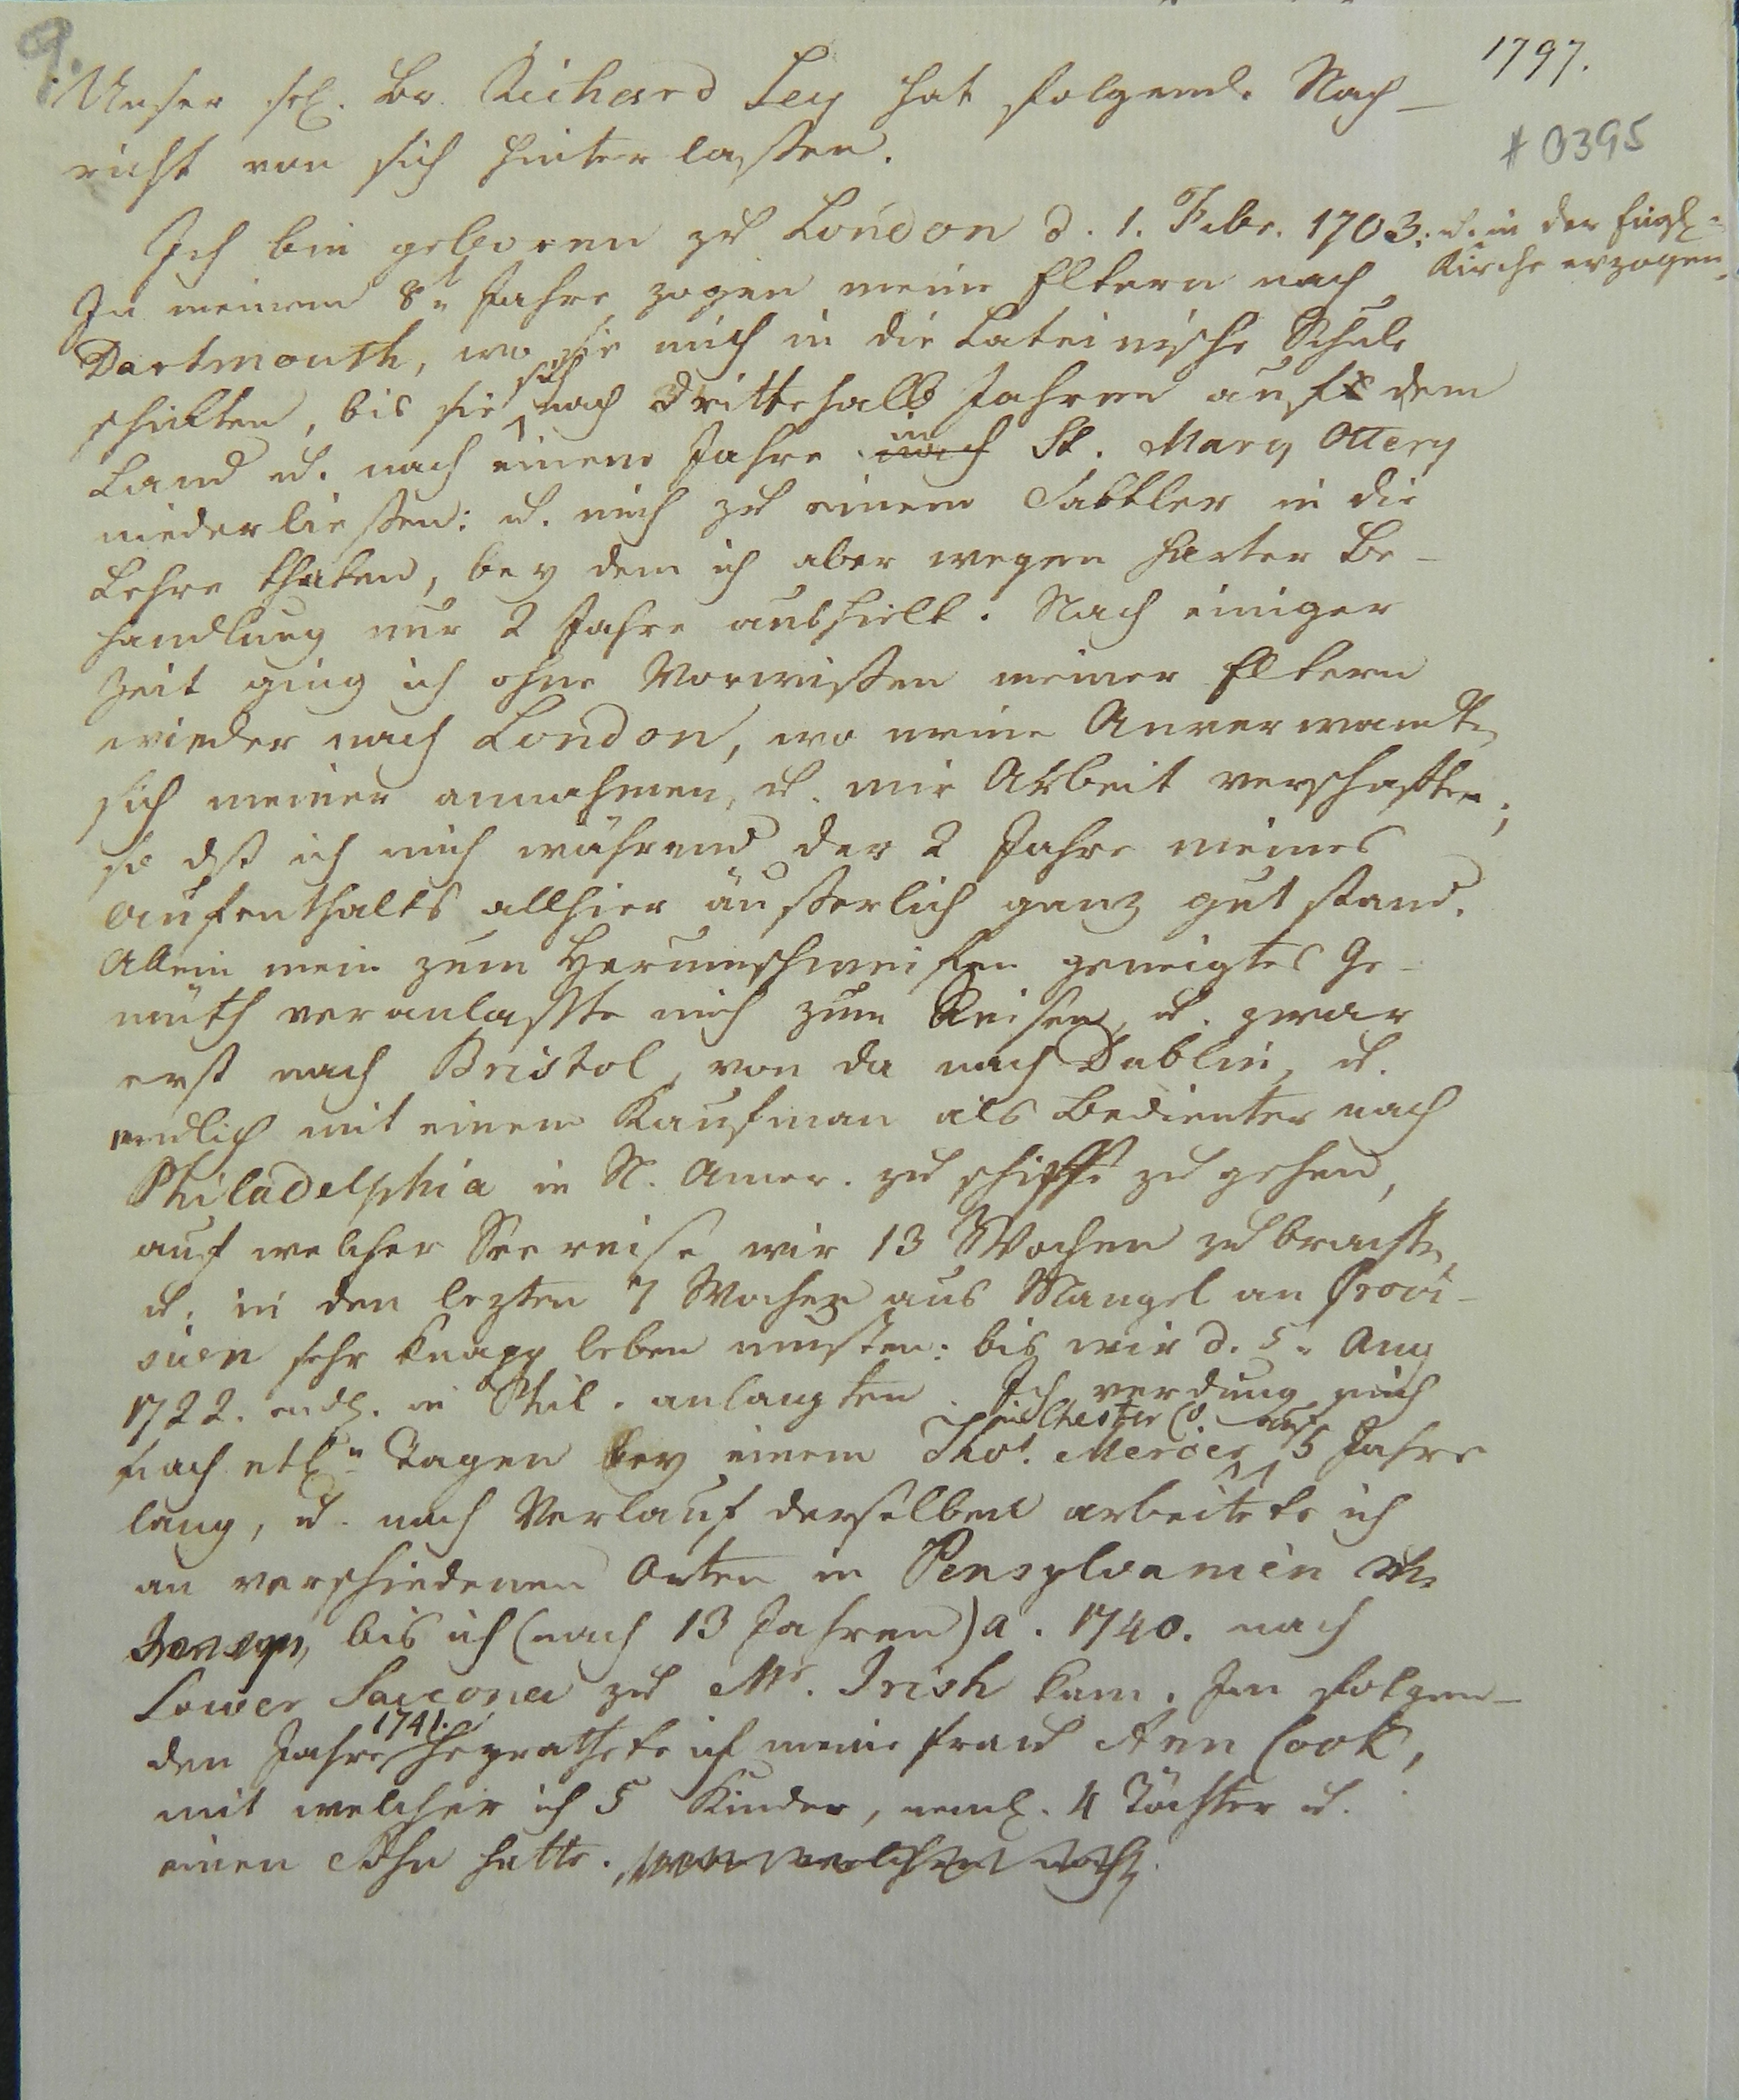 9.
1797.
# 0395
Unser sel. Br. Richard Ley hat folgende Nach-
richt von sich hinterlaßen.
Ich bin geboren zu London d. 1. Febr. 1703: u. in der Engl.
Kirche erzogen.
In meinem 8t. Jahre zogen meine Eltern nach
Dartmouth, wo sie mich in die Lateinische Schule
schikten, bis sie sich nach drittehalb Jahren aufs dem
Land u. nach einem Jahre nach in St. Mary Ottery
niederließen: u. mich zu einem Sattler in die
Lehre thaten, bey dem ich aber wegen harter Be-
handlung nur 2 Jahre aushielt. Nach einiger
Zeit ging ich ohne Vorwißen meiner Eltern
wieder nach London, wo meine Anverwandten
sich meiner annahmen, u. mir Arbeit verschafften;
so dß ich mich während der 2 Jahre meines
Aufenthalts allhier äußerlich ganz gut stand.
Allein mein zum Herumschweifen geneigtes Ge-
müth veranlaßte mich zum Reisen, u. zwar
erst nach Bristol, von da nach Dublin, u.
endlich mit einem Kaufman als Bedienter nach
Philadelphia in N. Amer. zu schiffe zu gehen,
auf welcher Seereise wir 13 Wochen zubrachten,
u. in den lezten 7 Wochen aus Mangel an Provi-
sion sehr knapp leben musten: bis wir d. 5n Aug
1722. endl. in Phil. anlangten. Ich verdung mich
nach etln Tagen bey einem Thos. Mercer in Chester Co. auf 5 Jahre
lang, u. nach Verlauf derselben arbeitete ich
an verschiedenen Orten in Pensylvanien u.
Jerseys, bis ich (nach 13 Jahren) a. 1740. nach
Lower Saucona zu Mr. Irish kam. Im folgen-
den Jahre 1741. heyrathete ich meine Frau Ann Cook,
mit welcher ich 5 Kinder, neml. 4 Töchter u.
einen Sohn hatte. von welchen noch